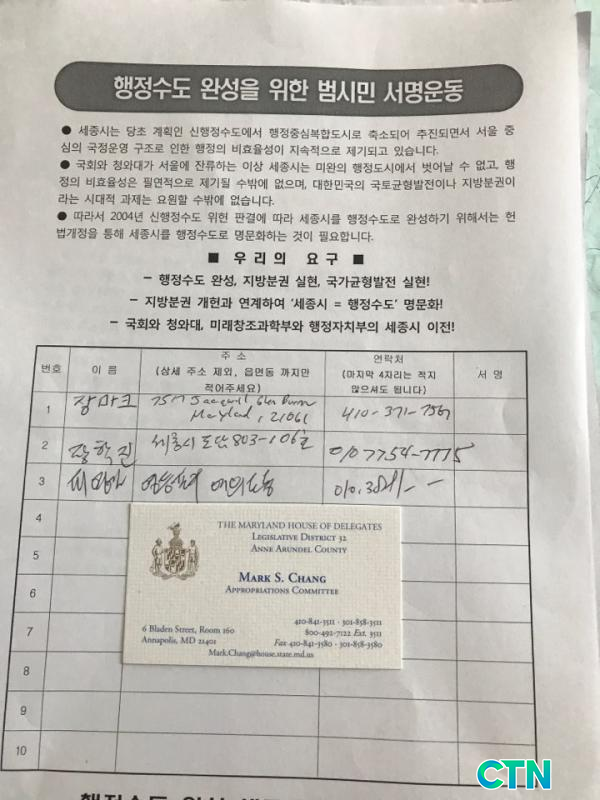 행정수도 완성을 위한 범시민 서명운동
● 세종시는 당초 계획인 신행정수도에서 행정중심복합도시로 축소되어 추진되면서 서울 중
심의 국정운영 구조로 인한 행정의 비효율성이 지속적으로 제기되고 있습니다.
● 국회와 청와대가 서울에 잔류하는 이상 세종시는 미완의 행정도시에서 벗어날 수 없고, 행
정의 비효율성은 필연적으로 제기될 수밖에 없으며, 대한민국의 국토균형발전이나 지방분권이
라는 시대적 과제는 요원할 수밖에 없습니다.
● 따라서 2004년 신행정수도 위헌 판결에 따라 세종시를 행정수도로 완성하기 위해서는 헌
법개정을 통해 세종시를 행정수도로 명문화하는 것이 필요합니다.
■ 우리의 요구 ■
- 행정수도 완성, 지방분권 실현, 국가균형발전 실현!
- 지방분권 개헌과 연계하여 '세종시 = 행정수도' 명문화!
- 국회와 청와대, 미래창조과학부와 행정자치부의 세종시 이전!
번호 이름 주소 연락처 서명
(상세 주소 제외, 읍면동 까지만 (마지막 4자리는 적지
적어주세요) 않으셔도 됩니다)
1 장마크 Glen Burnie
Maryland, 21061 410-371-
2 장학진 세종시 803-106호 010 7754-7775
3 010.
4
5
6
7
8
9
10
THE MARYLAND HOUSE OF DELEGATES
LEGISLATIVE DISTRICT 32
ANNE ARUNDEL COUNTY
MARK S. CHANG
APPROPRIATIONS COMMITTEE
6 Bladen Street, Room 160
Annapolis, MD 21401
410-841-3511 · 301-858-3511
800-492-7122 Ext. 3511
Fax 410-841-3580 · 301-858-3580
Mark.Chang@house.state.md.us
CTN